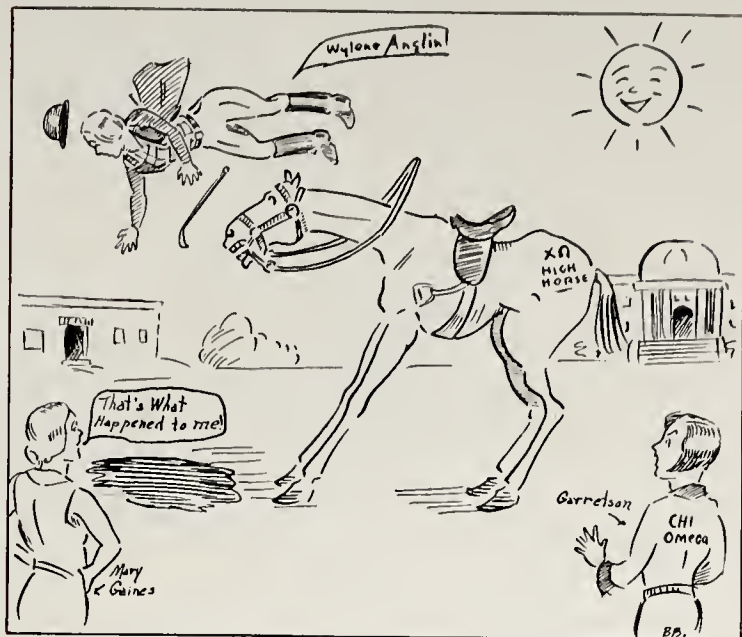 Wylene Anglin!
ΧΩ
HIGH
HORSE
That's What
Happened to me!
Mary
Gaines
Garretson
CHI
OMEGA
BB.